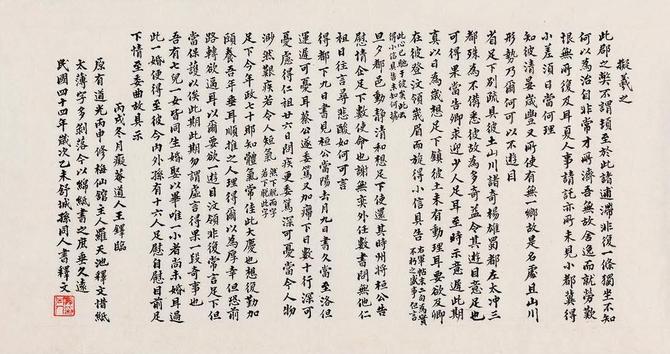 擬羲之
此郡之弊不謂頓至於此諸逋滯非復一條獨坐不知
何以為治自非常才所濟吾無故舍逸而就勞歎
恨無所復及耳夏人事請託亦所未見小都冀得
小差須日當何理
知彼清晏歲豐又所使有無一鄉故是名處且山川
形勢乃爾何可以不遊目
省足下別疏具彼土山川諸奇楊雄蜀都左太沖三
都殊為不備悉彼故為多奇益令其遊目意足也
可得果當告卿求迎少人足耳至時示意遲此期
真以日為歲想足下鎮彼土未有動理耳要欲及卿
在彼登汶領峨眉而旋得小信具告
右軍帖末二句為實
不朽之盛事但言
此心已馳于彼矣此云
得小信具告未知何據
旦夕都邑動靜清和想足下使還具時州將桓公告
慰情企足下數使命也謝無奕外任數書問無他仁
祖日往言尋悲酸如何可言
得都下九日書見桓公當陽去月九日書久當至洛但
運遲可憂耳蔡公遂委篤又加㿃下日數十行深可
憂慮得仁祖廿六日問疾更委篤深可憂當今人物
眇然艱疾若令人短氣
然下脫而字
若下脫此字
足下今年政七十耶知體氣常佳此大慶也想復勤加
頤養吾年垂耳順推之人理得爾以為厚幸但恐前
路轉欲逼耳以爾要欲一遊目汶領非復常言足下但
當保護以俟此期勿謂虛言得果一段奇事也
吾有七兒一女皆同生婚娶以畢唯一小者尚未婚耳過
此一婚便得至彼今內外孫有十六人足慰自慰目前足
下情至委曲故具示
丙戌冬月癡菴道人王鐸臨
原有道光丙申修梅仙館主人羅天池釋文惜紙
太薄字多剝落今以綿紙書之庶垂久遠
民國四十四年歲次乙未舒城孫同人書釋文